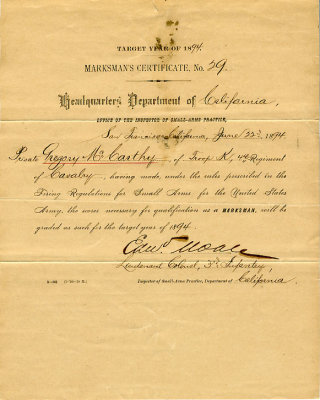 TARGET YEAR OF 1894.
MARKSMAN'S CERTIFICATE, No. 29.
Headquarters Department of California,
OFFICE OF THE INSPECTOR OF SMALL-ARMS PRACTICE,
San Francisco, California, June 22d, 1894
Private Gregory McCarthy, of Troop K, 4th Regiment
of Cavalry, having made, under the rules prescribed in the
Firing Regulations for Small Arms for the United States
Army, the scores necessary for qualification as a MARKSMAN, will be
graded as such for the target year of 1894.
Edw. Moale
Lieutenant Colonel, 3d Infantry,
Inspector of Small-Arms Practice, Department of California.